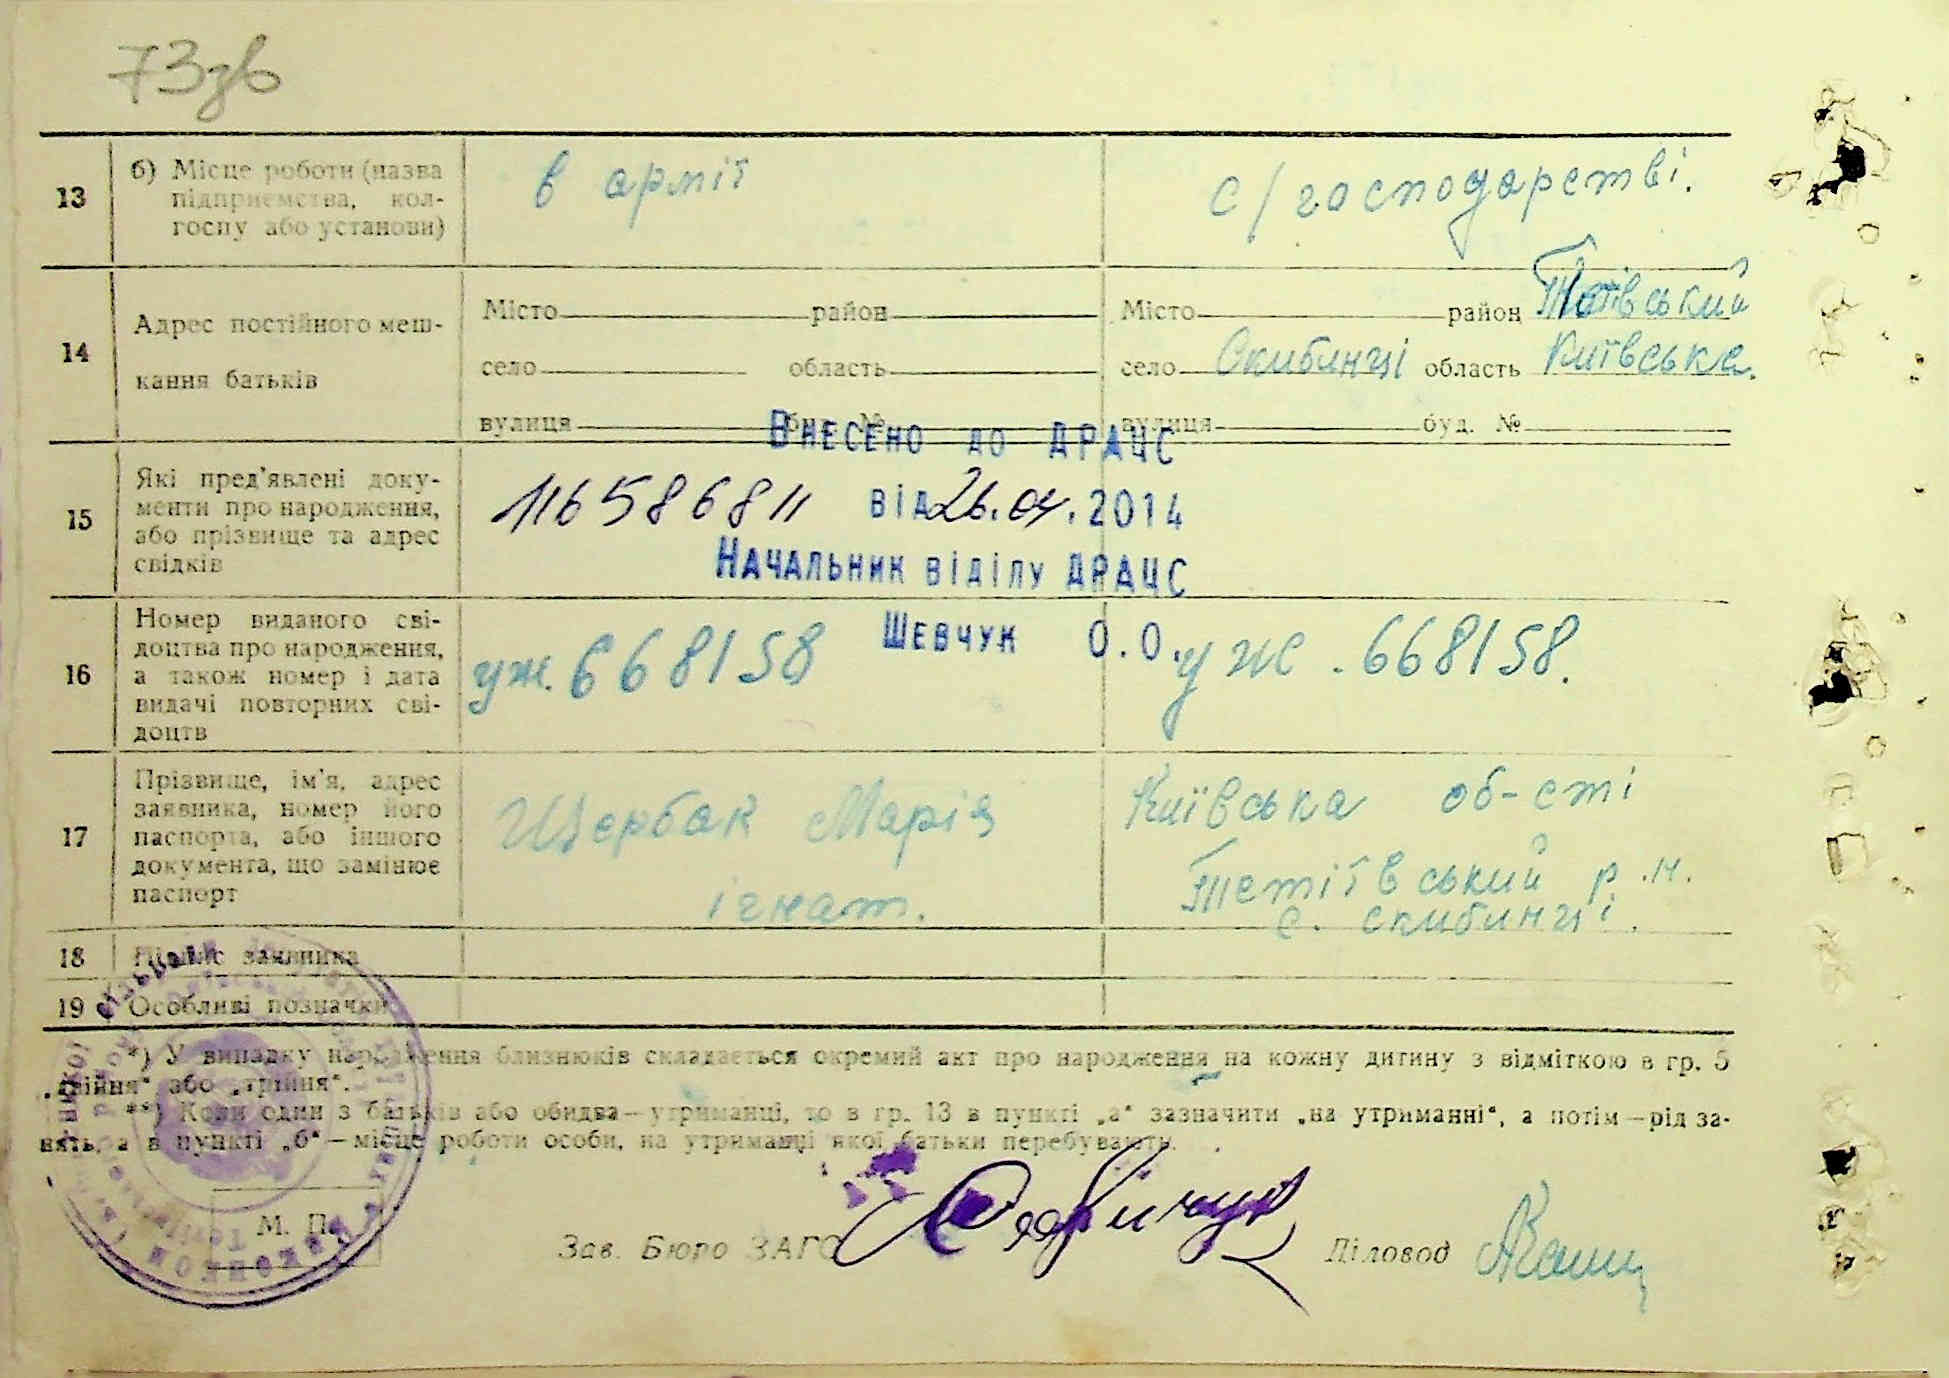 73зв
13 б) Місце роботи (назва підприємства, колгоспу або установи) в армії с/господарстві.
14 Адрес постійного мешкання батьків
Місто район Місто район Тетіївський
село область село Скибинці область Київська.
вулиця буд. № вулиця буд. №
Внесено до ДРАЦС
15 Які пред'явлені документи про народження, або прізвище та адрес свідків
11658681 від 26.04.2014
Начальник відділу ДРАЦС
Шевчук О.О.
16 Номер виданого свідоцтва про народження, а також номер і дата видачі повторних свідоцтв
уж. 668158 уже. 668158.
17 Прізвище, ім'я, адрес заявника, номер його паспорта, або іншого документа, що замінює паспорт
Щербак Марія Київська об-сті
ігнат. Тетіївський р.н.
с. скибинці.
18 Підпис заявника
19 Особливі позначки
*) У випадку народження близнюків складається окремий акт про народження на кожну дитину з відміткою в гр. 5
„двійня“ або „трійня“.
**) Коли один з батьків або обидва—утриманці, то в гр. 13 в пункті „а“ зазначити „на утриманні“, а потім—рід за-
нять, а в пункті „б“—місце роботи особи, на утриманці якої батьки перебувають.
М. П.
Зав. Бюро ЗАГС Діловод